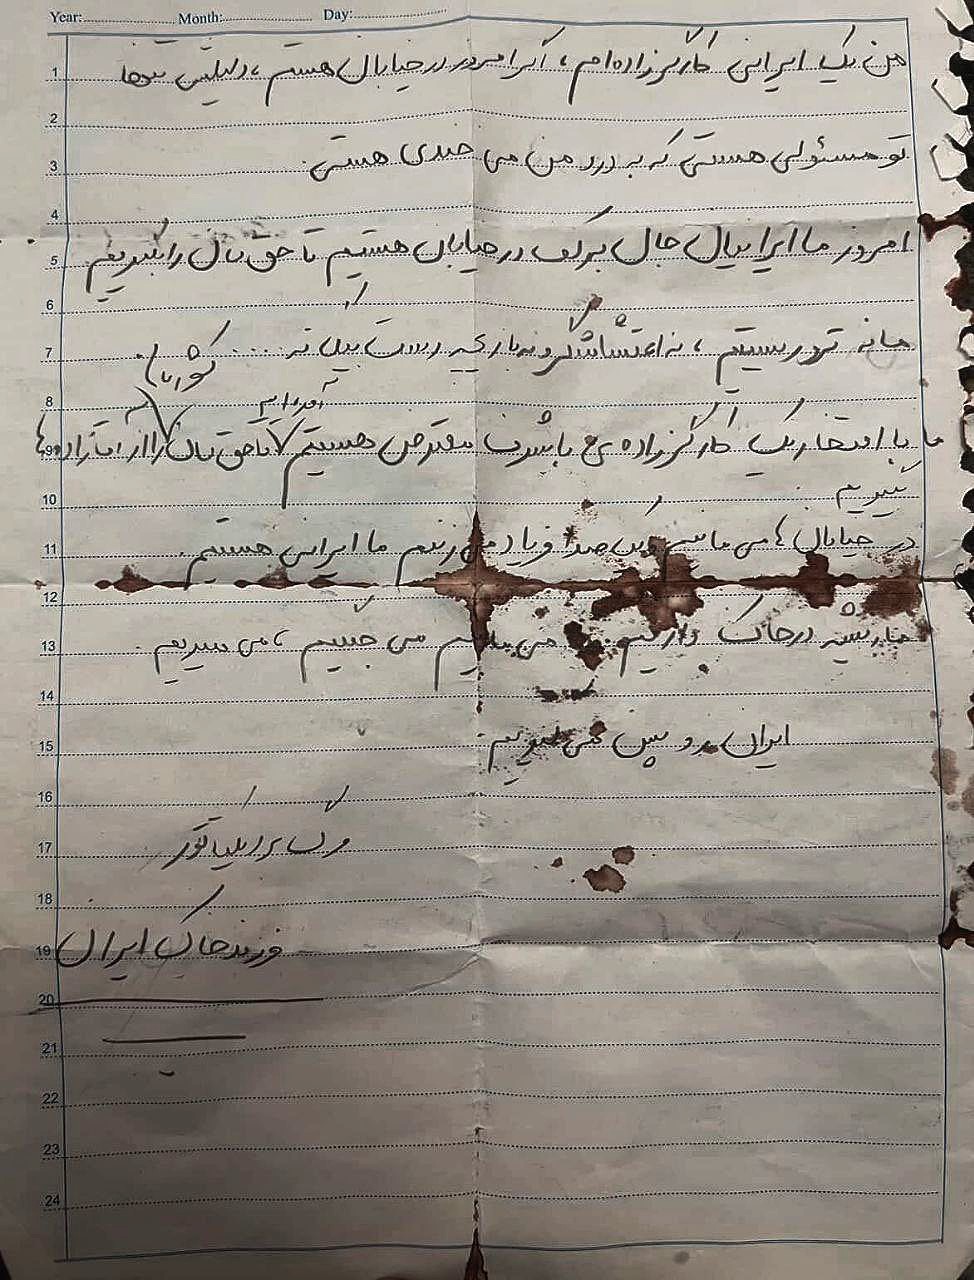 Year: Month: Day:
1 من یک ایرانی کارگرزاده‌ام، اگر امروز در خیابان هستم، دلیلش تنها
2
3 تو مسئولی هستی که به درد من می خندی هستی.
4
5 امروز ما ایرانیان جان بر کف در خیابان هستیم تا حق مان را بگیریم
6
7 ما نه تروریستیم، نه اغتشاشگر و نه بازیچه دست بیگانه.... کشورمان
8 آمده‌ایم
9 ما با افتخار یک کارگرزاده‌ی با شرف معترض هستیم تا حق مان را از آقازاده‌ها
بگیریم
10
11 در خیابان‌ها می مانیم و یک صدا فریاد می زنیم ما ایرانی هستیم.
12
13 ما ریشه در خاک داریم می مانیم می جنگیم، می میریم.
14
15 ایران رو پس می گیریم
16
17 مرگ بر دیکتاتور
18
19 فرزند خاک ایران
20
21
22
23
24